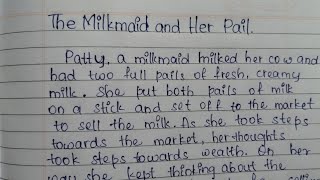 The Milkmaid and Her Pail.
Patty, a milkmaid milked her cow and
had two full pails of fresh, creamy
milk. She put both pails of milk
on a stick and set off to the market
to sell the milk. As she took steps
towards the market, her thoughts
took steps towards wealth. On her
way she kept thinking about the